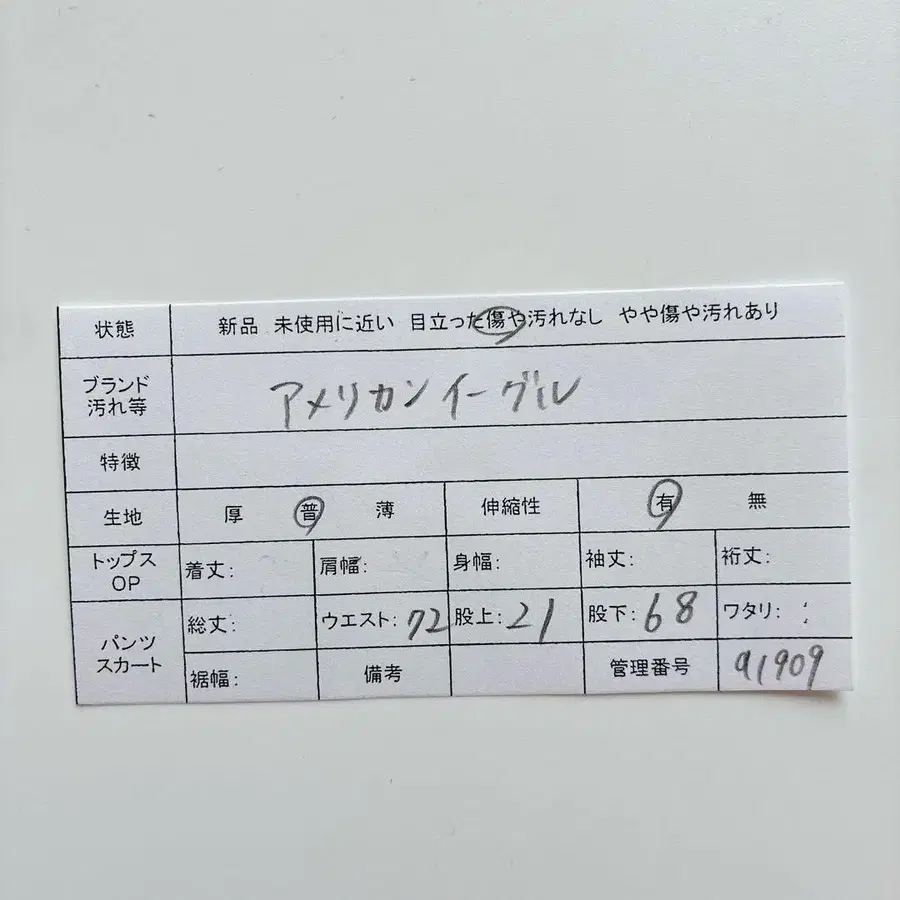 状態 新品 未使用に近い 目立った傷や汚れなし やや傷や汚れあり
ブランド
汚れ等 アメリカンイーグル
特徴
生地 厚 普 薄 伸縮性 有 無
トップス
OP 着丈: 肩幅: 身幅: 袖丈: 裄丈:
パンツ
スカート 総丈: ウエスト:72 股上:21 股下:68 ワタリ:
裾幅: 備考 管理番号 a1909